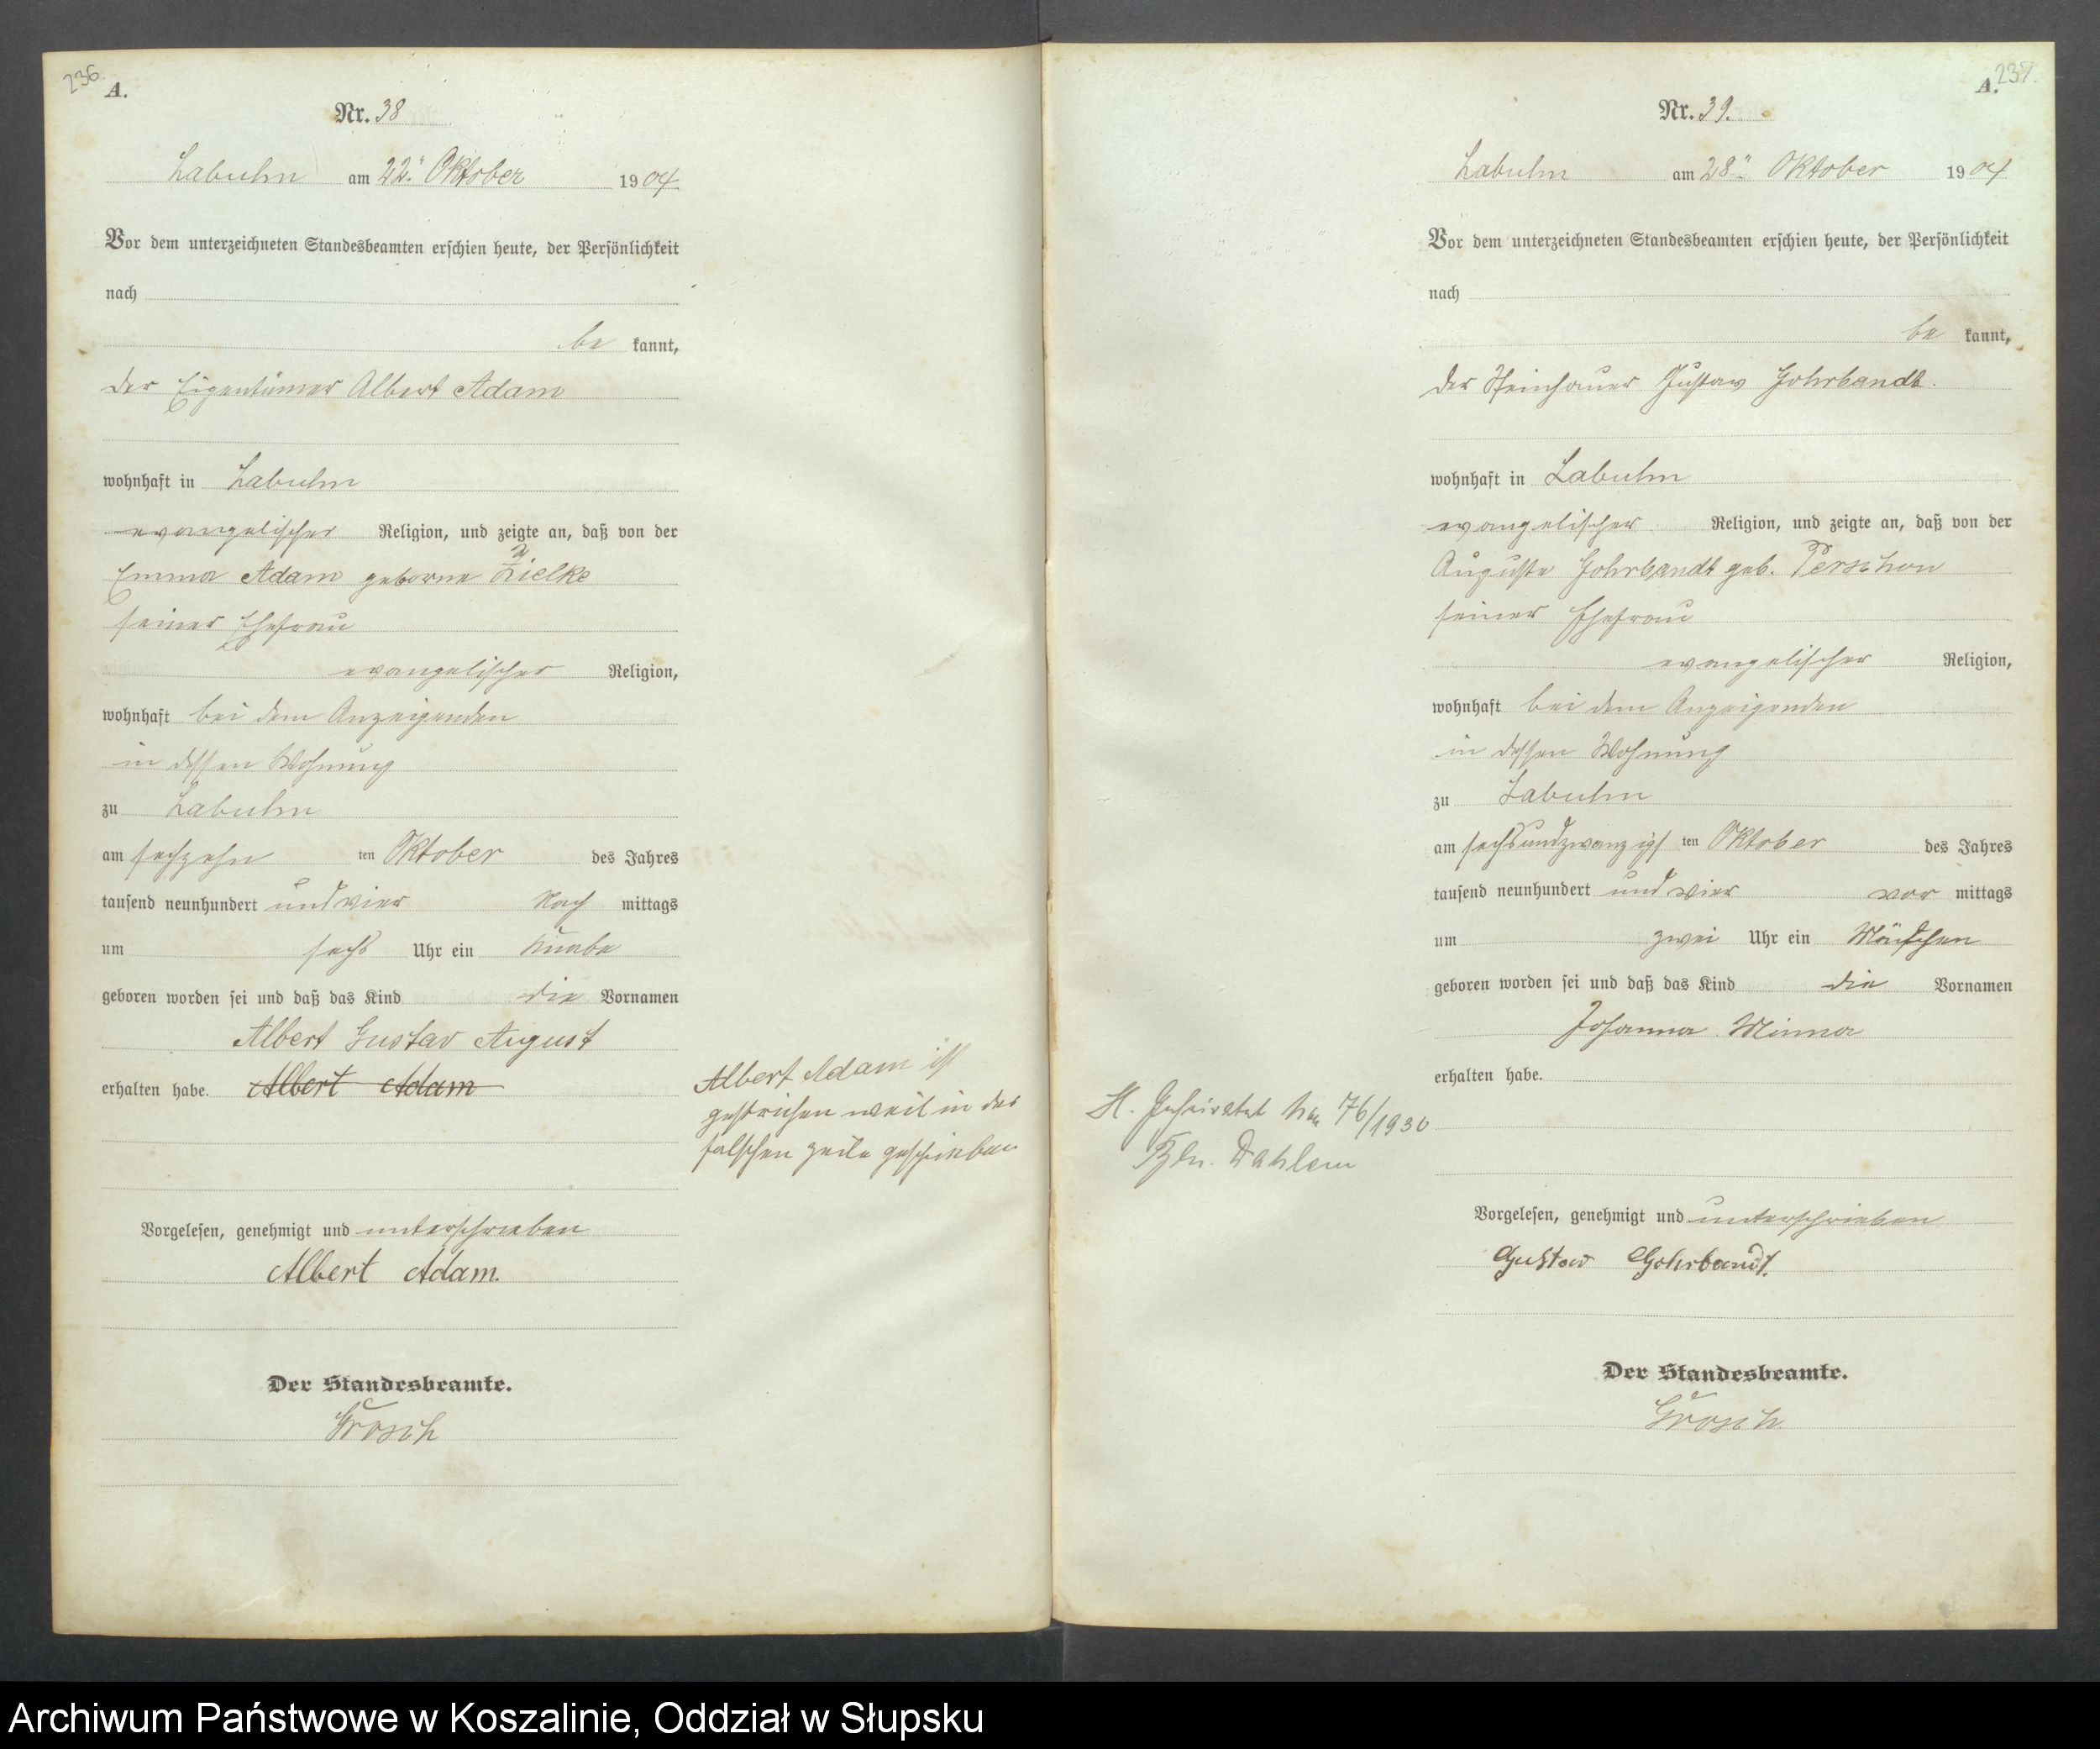 236.
A.
Nr. 38
Labuhn am 22. Oktober 1904.
Vor dem unterzeichneten Standesbeamten erschien heute, der Persönlichkeit
nach
be kannt,
der Eigentümer Albert Adam
wohnhaft in Labuhn
evangelischer Religion, und zeigte an, daß von der
Emma Adam geborne Zielke
seiner Ehefrau
evangelischer Religion,
wohnhaft bei dem Anzeigenden
in dessen Wohnung
zu Labuhn
am sechzehn ten Oktober des Jahres
tausend neunhundert und vier Nach mittags
um sechs Uhr ein Knabe
geboren worden sei und daß das Kind die Vornamen
Albert Gustav August
erhalten habe. Albert Adam
Albert Adam ist
gestrichen weil in der
falschen Zeile geschrieben
Vorgelesen, genehmigt und unterschrieben
Albert Adam.
Der Standesbeamte.
Grosch
237.
A.
Nr. 39.
Labuhn am 28. Oktober 1904
Vor dem unterzeichneten Standesbeamten erschien heute, der Persönlichkeit
nach
be kannt,
der Steinhauer Gustav Gohrbandt.
wohnhaft in Labuhn
evangelischer Religion, und zeigte an, daß von der
Auguste Gohrbandt geb. Perschon
seiner Ehefrau
evangelischer Religion,
wohnhaft bei dem Anzeigenden
in dessen Wohnung
zu Labuhn
am sechsundzwanzigs ten Oktober des Jahres
tausend neunhundert und vier vor mittags
um zwei Uhr ein Mädchen
geboren worden sei und daß das Kind die Vornamen
Johanna Minna
erhalten habe.
H. Geheiratet 76/1930
Bln. Dahlem
Vorgelesen, genehmigt und unterschrieben
Gustav Gohrbandt.
Der Standesbeamte.
Grosch.
Archiwum Państwowe w Koszalinie, Oddział w Słupsku